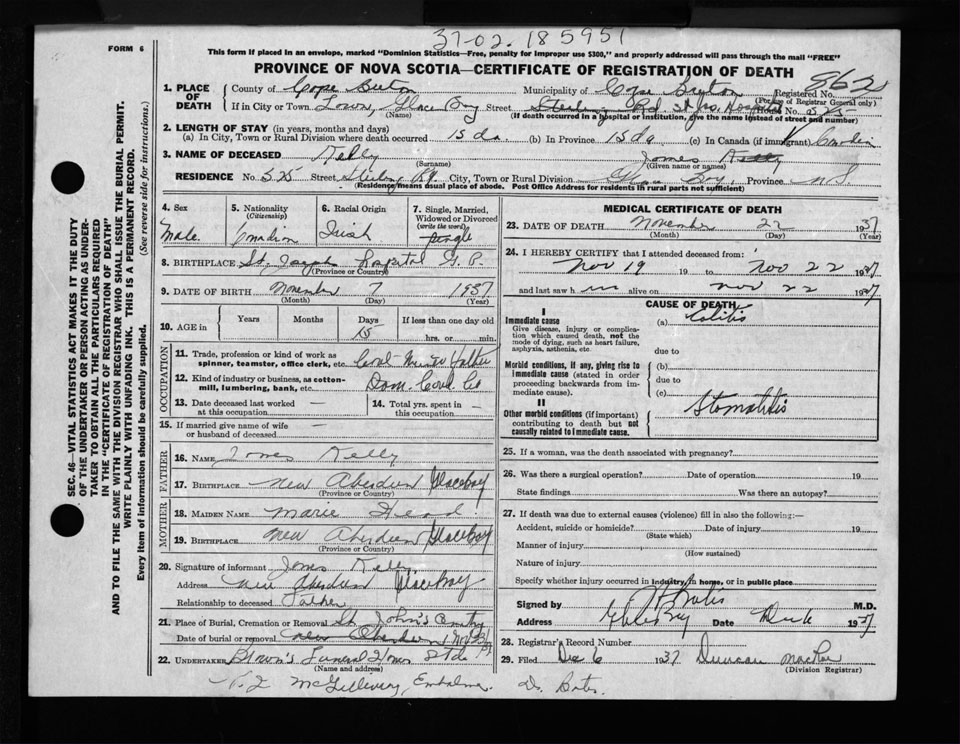 37-02. 185951
FORM 6
This form if placed in an envelope, marked "Dominion Statistics—Free, penalty for improper use $300," and properly addressed will pass through the mail "FREE"
PROVINCE OF NOVA SCOTIA—CERTIFICATE OF REGISTRATION OF DEATH
862
1. PLACE OF DEATH
County of Cape Breton Municipality of Cape Breton Registered No.
(For use of Registrar General only)
If in City or Town Town, Glace Bay Street Sterling Rd St Jos. Hospital House No. 525
(Name) (If death occurred in a hospital or institution, give the name instead of street and number)
2. LENGTH OF STAY (in years, months and days)
(a) In City, Town or Rural Division where death occurred 15 da. (b) In Province 15 da (c) In Canada (if immigrant)
3. NAME OF DECEASED Kelly James Kelly
(Surname) (Given name or names)
RESIDENCE No. 525 Street Sterling Rd. City, Town or Rural Division Glace Bay, Province N S.
(Residence means usual place of abode. Post Office Address for residents in rural parts not sufficient)
4. Sex Male
5. Nationality (Citizenship) Canadian
6. Racial Origin Irish
7. Single, Married, Widowed or Divorced (write the word) Single
8. BIRTHPLACE St. Joseph Hospital G. B.
(Province or Country)
9. DATE OF BIRTH November 7 1937
(Month) (Day) (Year)
10. AGE in Years Months Days 15 If less than one day old
hrs. or min.
OCCUPATION
11. Trade, profession or kind of work as spinner, teamster, office clerk, etc. Coal Miner Father
12. Kind of industry or business, as cotton-mill, lumbering, bank, etc. Dom. Coal Co
13. Date deceased last worked at this occupation —
14. Total yrs. spent in this occupation —
15. If married give name of wife or husband of deceased —
FATHER
16. NAME James Kelly
17. BIRTHPLACE New Aberdeen Glace Bay
(Province or Country)
MOTHER
18. MAIDEN NAME Marie Head
19. BIRTHPLACE New Aberdeen Glace Bay
(Province or Country)
20. Signature of informant James Kelly
Address New Aberdeen Glace Bay
Relationship to deceased Father
21. Place of Burial, Cremation or Removal St. John's Cemetry
Date of burial or removal New Aberdeen
22. UNDERTAKER Brown's Funeral Home
(Name and address)
McGillivray, Embalmer.
MEDICAL CERTIFICATE OF DEATH
23. DATE OF DEATH November 22 1937
(Month) (Day) (Year)
24. I HEREBY CERTIFY that I attended deceased from:
Nov 19 19 to Nov 22 1937
and last saw h im alive on Nov 22 1937
CAUSE OF DEATH
I
Immediate cause (a) Colitis
Give disease, injury or complication which caused death, not the mode of dying, such as heart failure, asphyxia, asthenia, etc.
due to
Morbid conditions, if any, giving rise to immediate cause (stated in order proceeding backwards from immediate cause). (b)
due to
(c)
II
Other morbid conditions (if important) contributing to death but not causally related to immediate cause. Stomatitis
25. If a woman, was the death associated with pregnancy?
26. Was there a surgical operation? Date of operation 19
State findings Was there an autopsy?
27. If death was due to external causes (violence) fill in also the following:—
Accident, suicide or homicide? Date of injury 19
(State which)
Manner of injury
(How sustained)
Nature of injury
Specify whether injury occurred in industry, in home, or in public place
Signed by M.D.
Address Glace Bay Date 1937
28. Registrar's Record Number
29. Filed Dec 6 1937 Duncan MacRae
(Division Registrar)
Dr. Bates.
SEC. 46—VITAL STATISTICS ACT MAKES IT THE DUTY
OF THE UNDERTAKER OR PERSON ACTING AS UNDER-
TAKER TO OBTAIN ALL THE PARTICULARS REQUIRED
IN THE "CERTIFICATE OF REGISTRATION OF DEATH"
AND TO FILE THE SAME WITH THE DIVISION REGISTRAR WHO SHALL ISSUE THE BURIAL PERMIT.
WRITE PLAINLY WITH UNFADING INK. THIS IS A PERMANENT RECORD.
Every item of information should be carefully supplied. (See reverse side for instructions.)